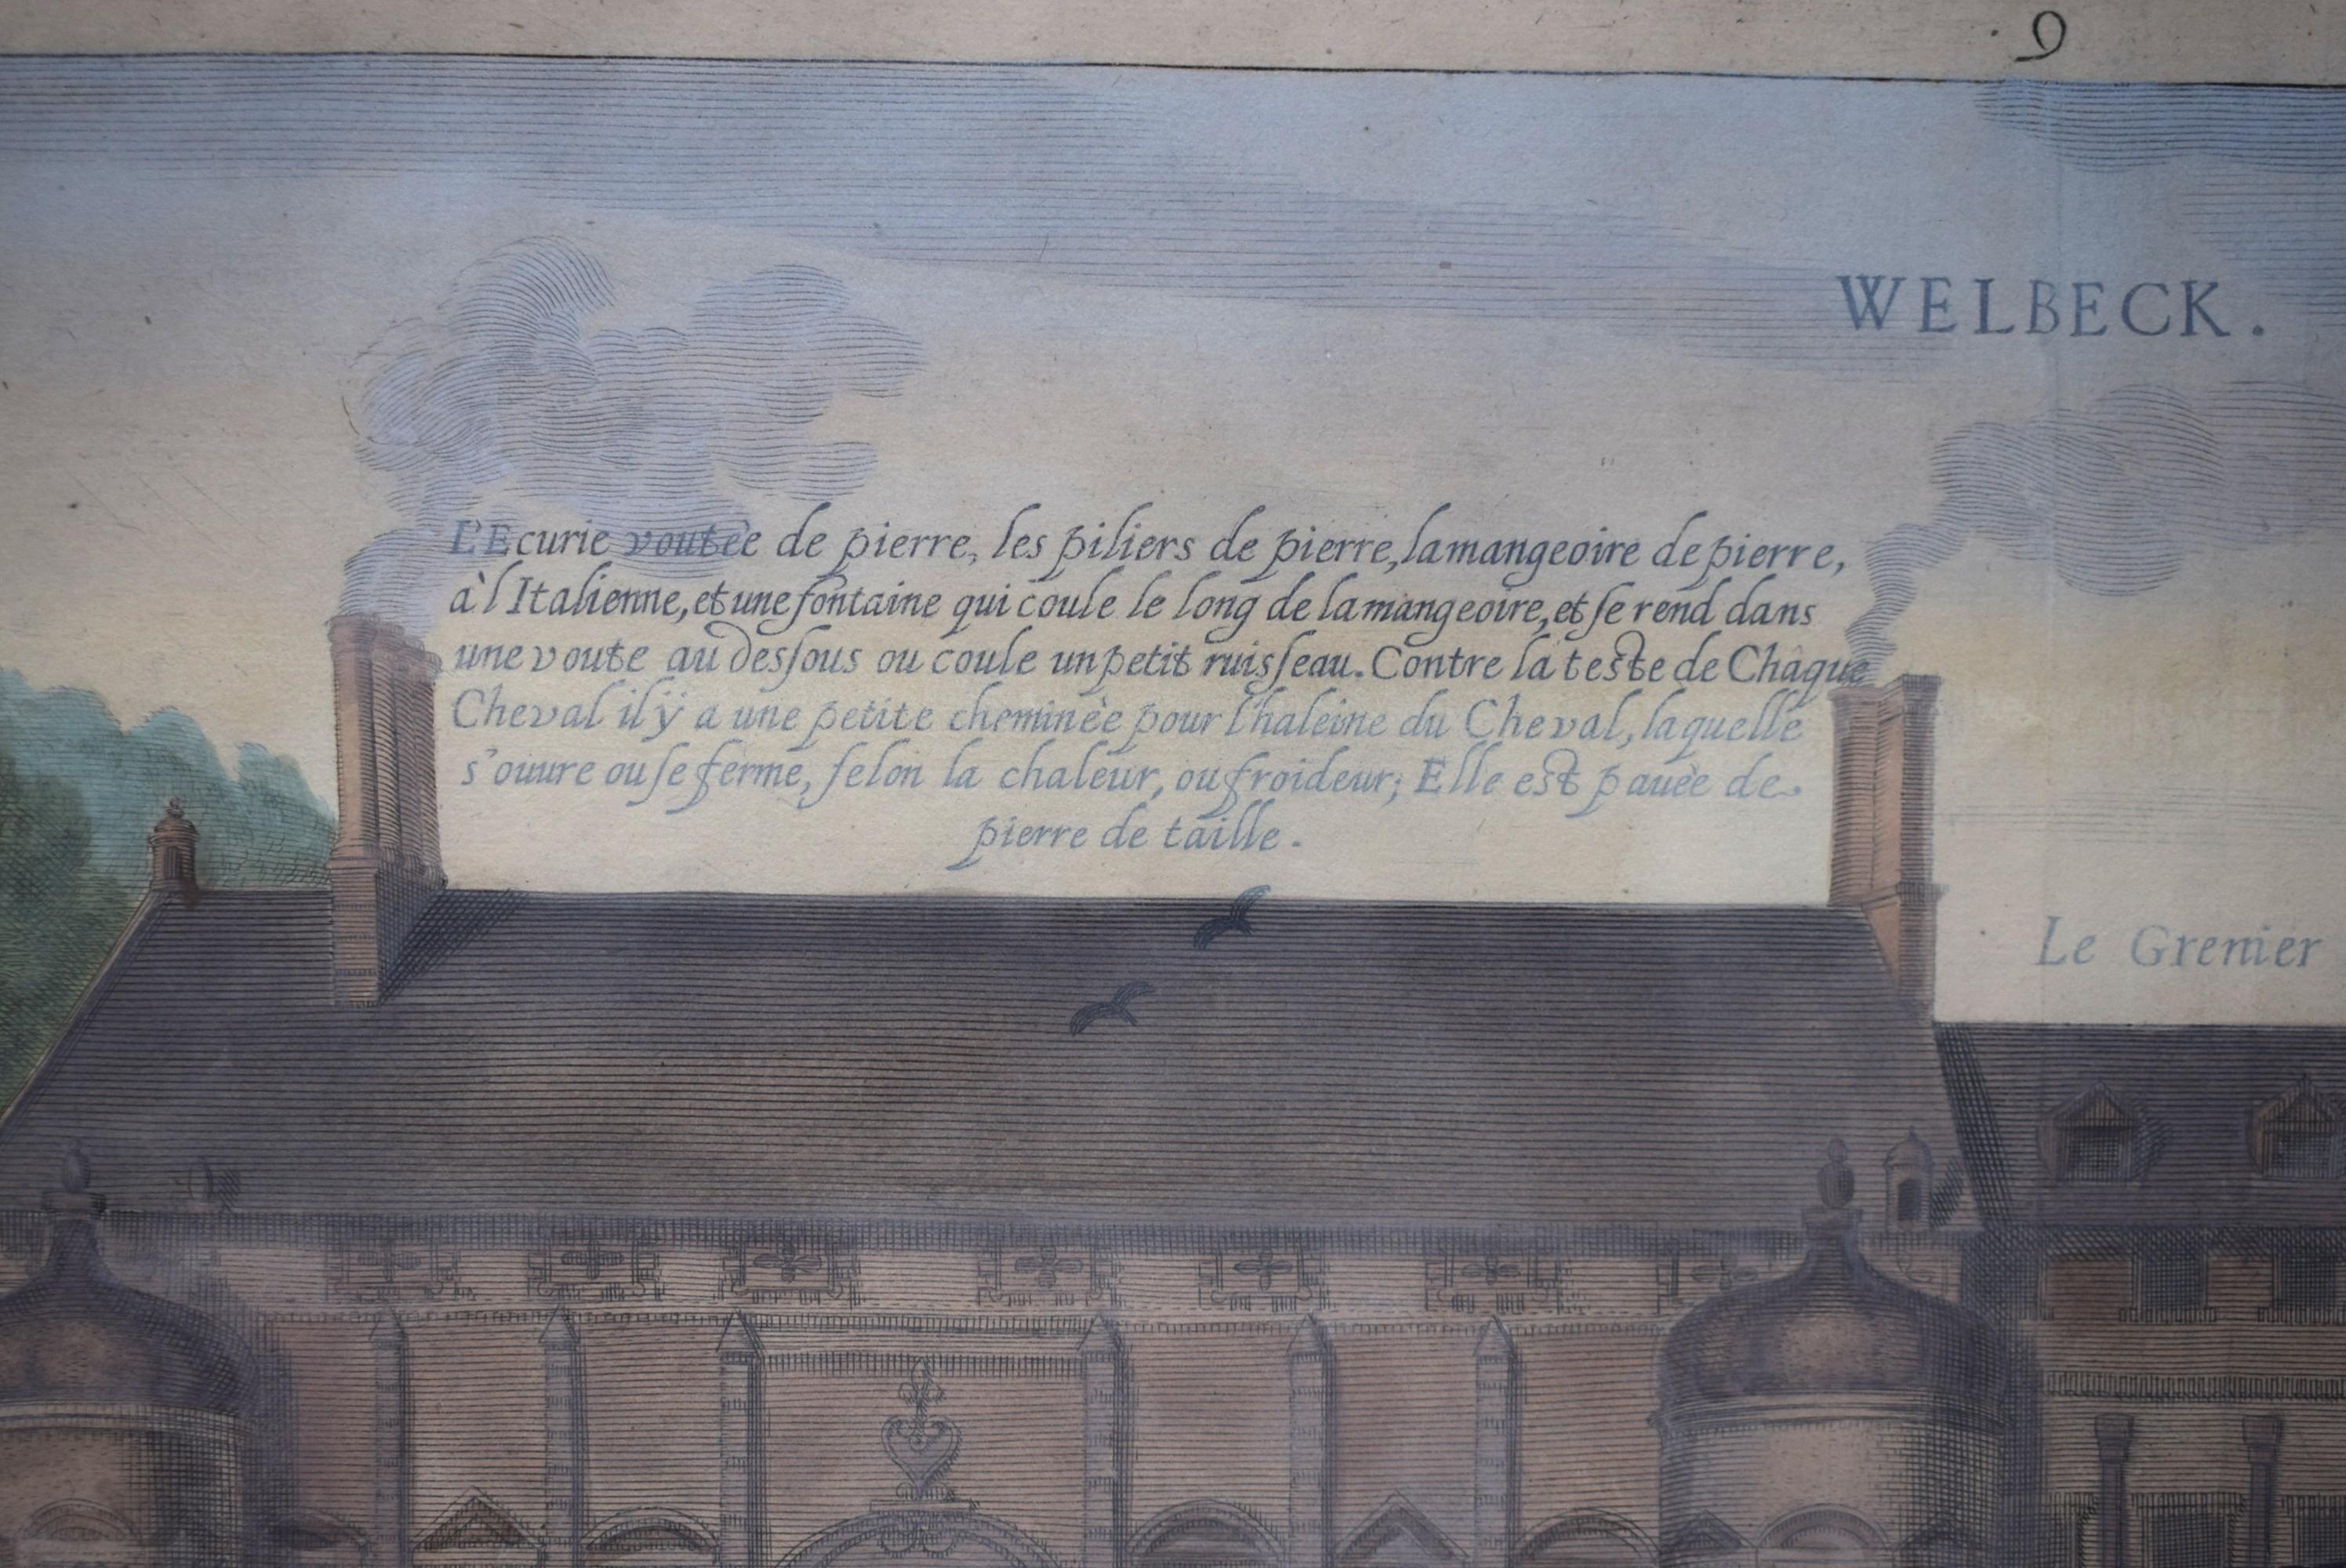 9
WELBECK.
L'Ecurie voutèe de pierre, les piliers de pierre, la mangeoire de pierre,
à l'Italienne, et une fontaine qui coule le long de la mangeoire, et ſe rend dans
une voute au deſſous ou coule un petit ruisſeau. Contre la teste de Châque
Cheval il ÿ a une petite cheminèe pour l'haleine du Cheval, laquelle
s'ouure ou ſe ferme, ſelon la chaleur, ou froideur; Elle est pauèe de
pierre de taille.
Le Grenier